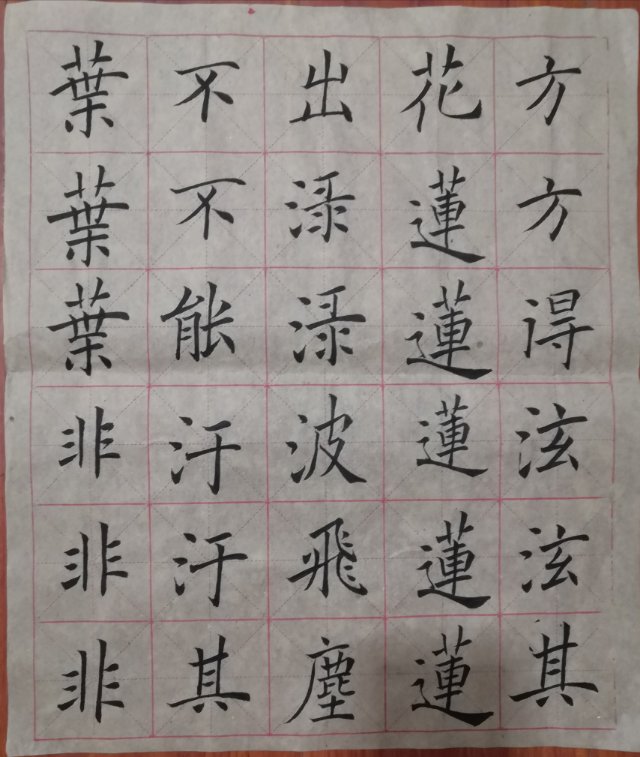 方方得泫泫其
花蓮蓮蓮蓮蓮
出渌渌波飛塵
不不能汙汙其
葉葉葉非非非